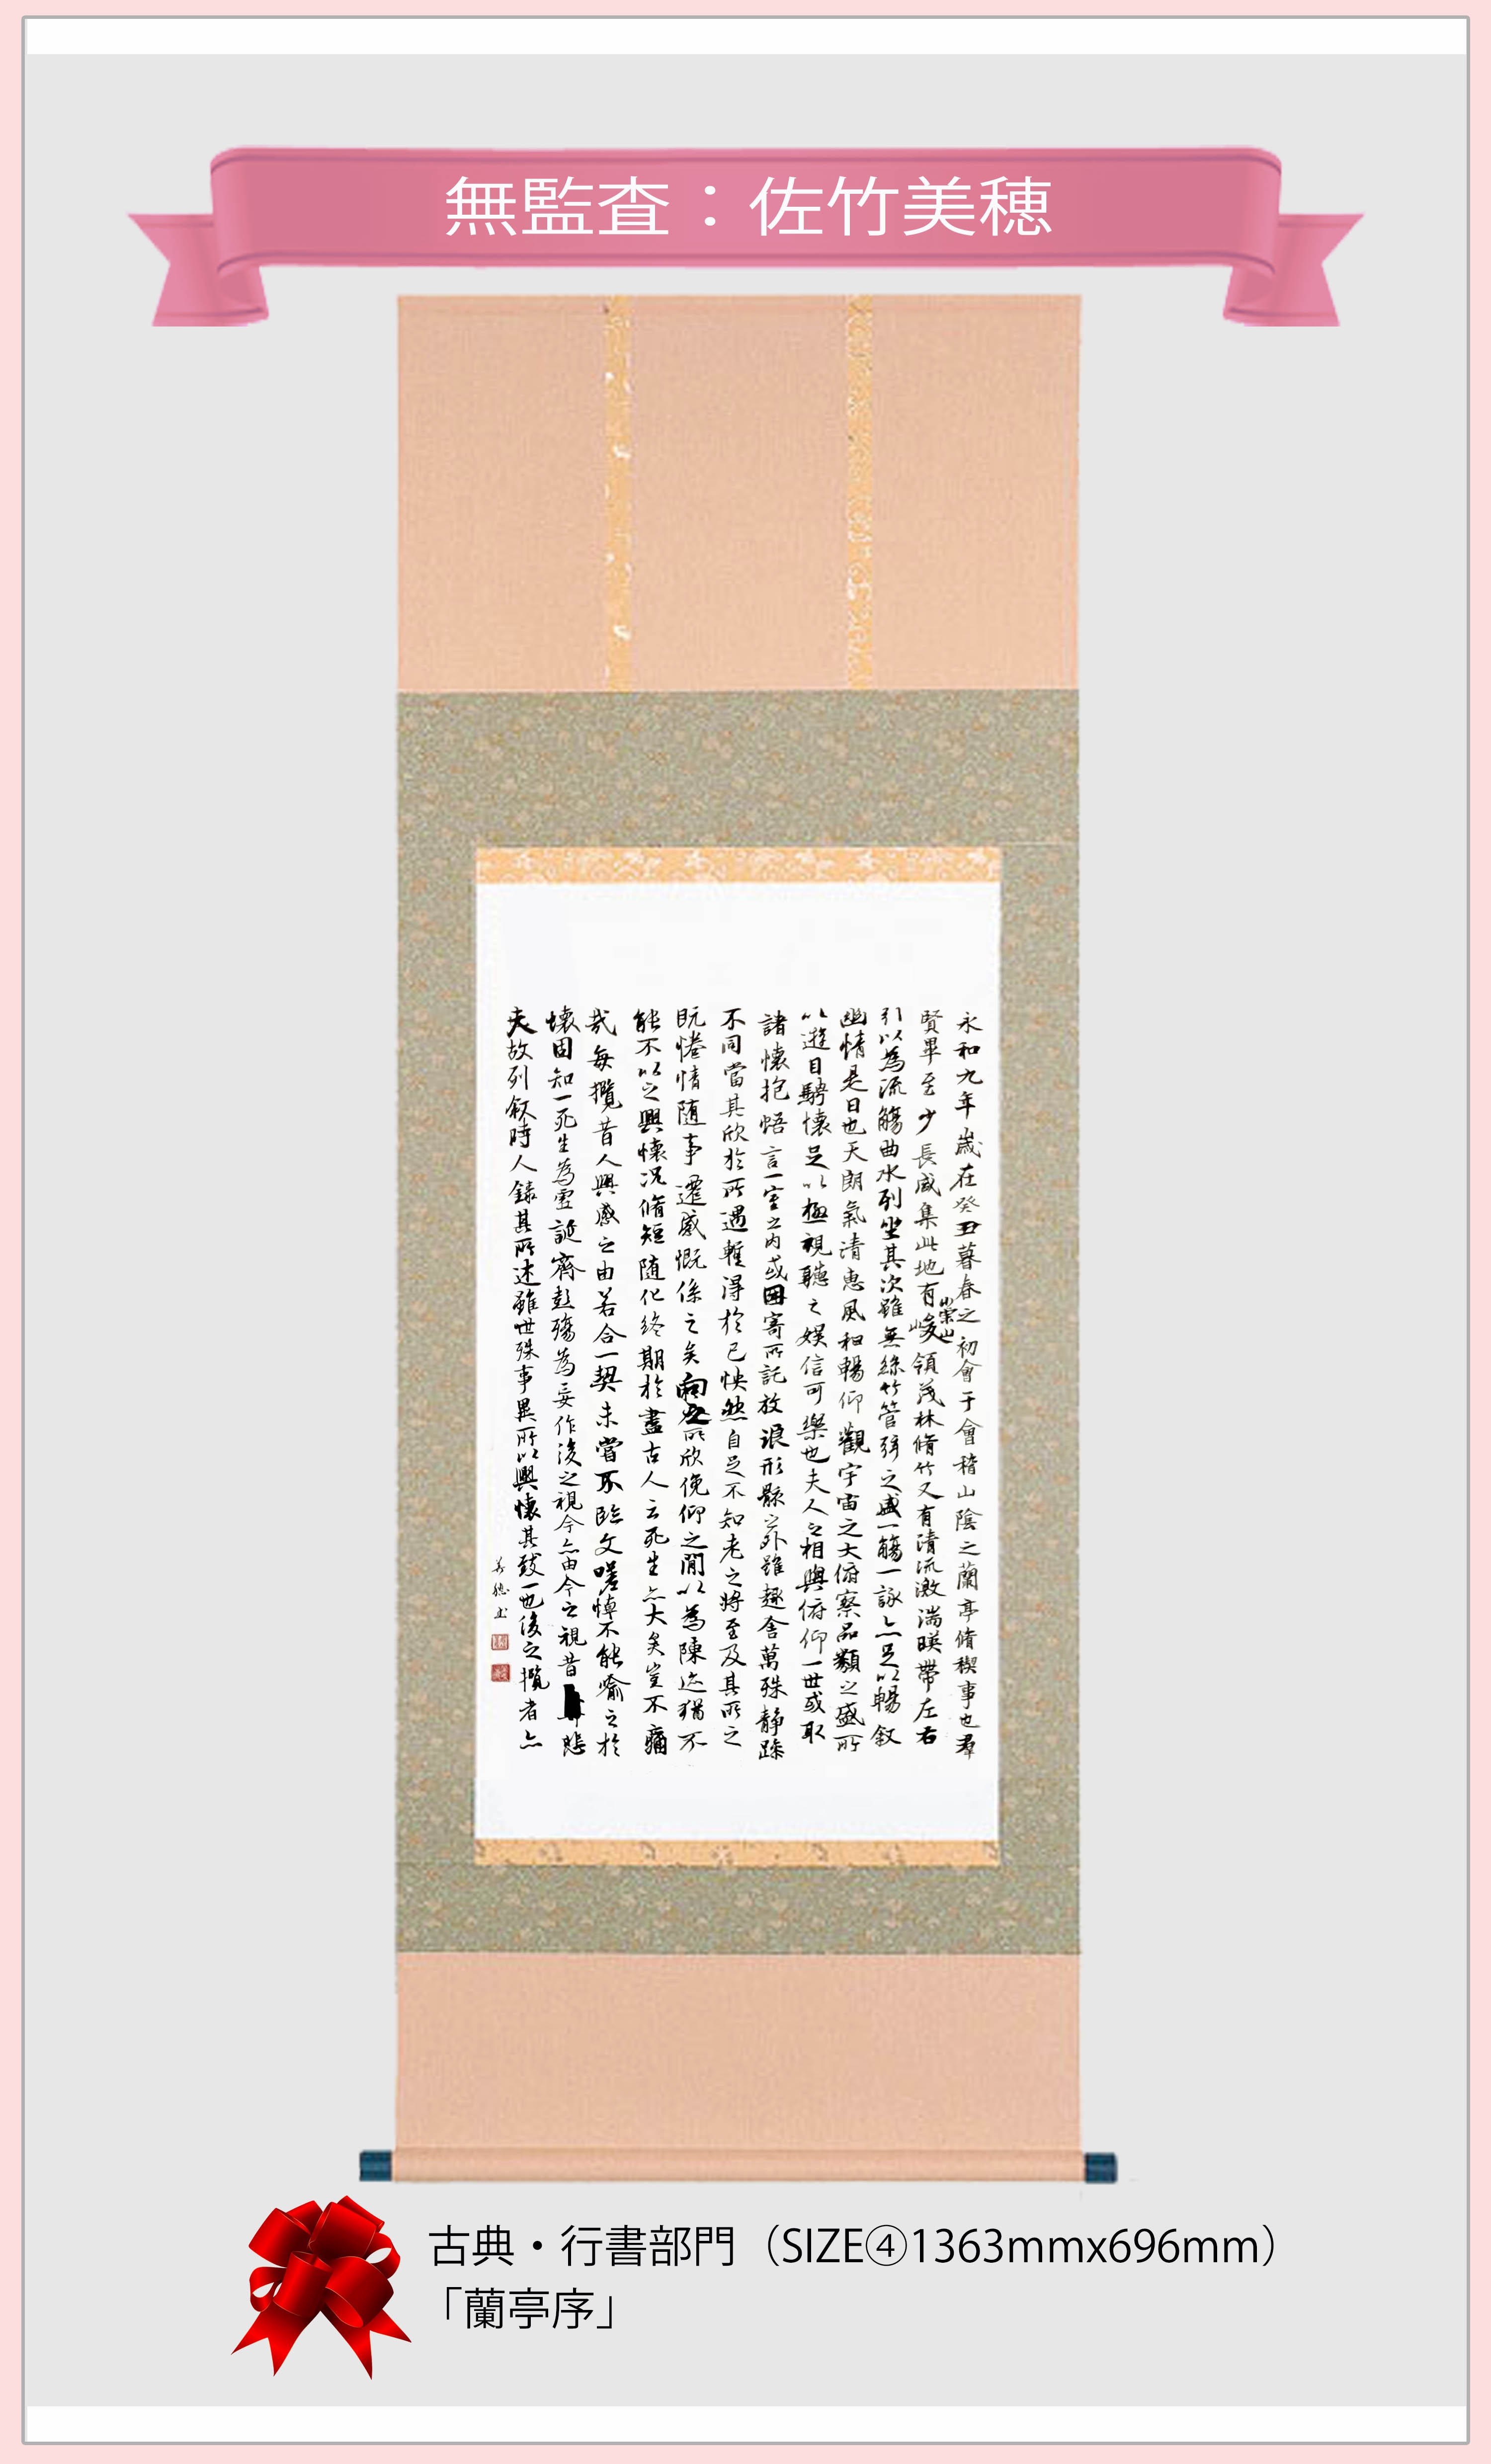 無監査：佐竹美穂
永和九年歲在癸丑暮春之初會于會稽山陰之蘭亭脩禊事也羣
賢畢至少長咸集此地有崇山峻領茂林脩竹又有清流激湍暎帶左右
引以為流觴曲水列坐其次雖無絲竹管弦之盛一觴一詠亦足以暢叙
幽情是日也天朗氣清惠風和暢仰觀宇宙之大俯察品類之盛所
以遊目騁懷足以極視聽之娛信可樂也夫人之相與俯仰一世或取
諸懷抱悟言一室之内或因寄所託放浪形骸之外雖趣舍萬殊静躁
不同當其欣於所遇蹔得於己怏然自足不知老之將至及其所之
既惓情随事遷感慨係之矣向之所欣俛仰之閒以為陳迹猶不
能不以之興懷況脩短随化終期於盡古人云死生亦大矣豈不痛
哉每攬昔人興感之由若合一契未嘗不臨文嗟悼不能喻之於
懷固知一死生為虛誕齊彭殤為妄作後之視今亦由今之視昔悲
夫故列叙時人錄其所述雖世殊事異所以興懷其致一也後之攬者亦
美穂書
古典・行書部門（SIZE④1363mmx696mm）
「蘭亭序」